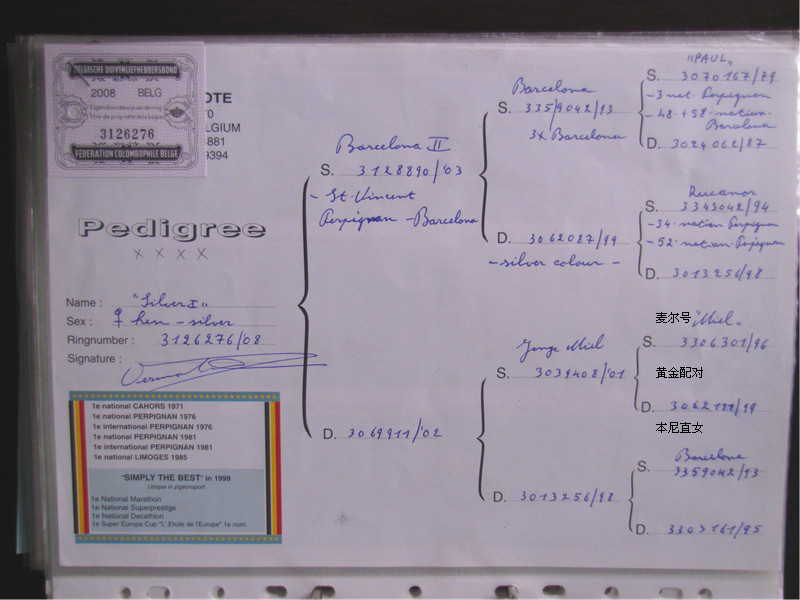 BELGISCHE DUIVENLIEFHEBBERSBOND
2008 BELG
3126276
FEDERATION COLOMBOPHILE BELGE
OTE
70
LGIUM
881
9394
Pedigree
x x x x
Name : "Silver I"
Sex : ♀ hen - silver
Ringnumber : 3126276/08
Signature :
1e national CAHORS 1971
1e national PERPIGNAN 1976
1e international PERPIGNAN 1976
1e national PERPIGNAN 1981
1e international PERPIGNAN 1981
1e national LIMOGES 1985
"SIMPLY THE BEST" in 1999
Unique in pigeonsport
1e National Marathon
1e National Superprestige
1e National Decathlon
1e Super Europa Cup "L' Etoile de l'Europe" 1e nom.
Barcelona II
S. 3128890/'03
- St. Vincent
Perpignan - Barcelona
D. 3069911/'02
Barcelona
S. 3359042/93
3x Barcelona
D. 3062087/99
- silver colour -
Jonge Miel
S. 3039408/'01
D. 3013256/98
"PAUL"
S. 3070167/79
- 3 nat. Perpignan
- 48 + 58 nation.
Barcelona
D. 3024062/87
Rucanor
S. 3343042/94
- 34 nation Perpignan
- 52 nation. Perpignan
D. 3013256/98
麦尔号 "Miel"
S. 3306301/96
黄金配对
D. 3062111/99
本尼直女
Barcelona
S. 3359042/93
D. 3303161/95